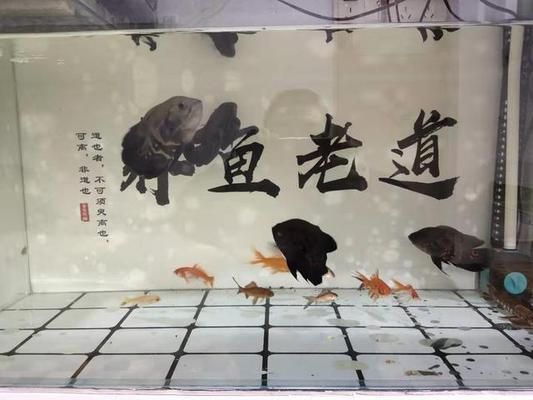 鱼老道
道也者，不可须臾离也，
可离，非道也